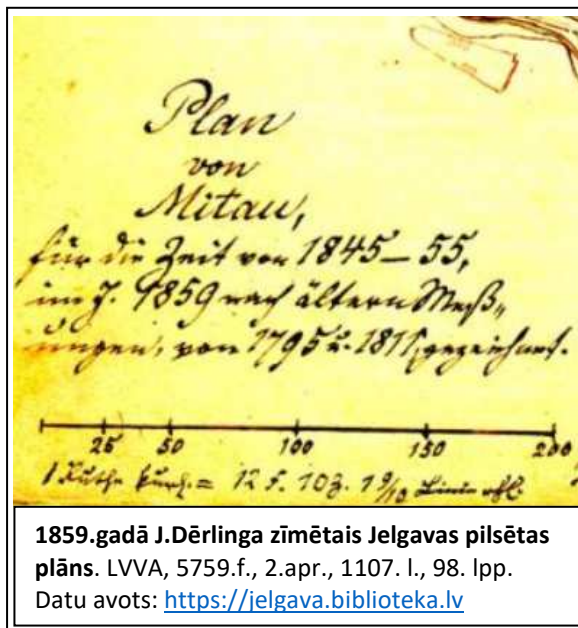 Plan
von
Mitau,
für die Zeit von 1845 – 55,
im J. 1859 nach ältern Meß„
ungen, von 1795 u. 1811, gezeichnet.
25 50 100 150 200
1 Ruthe kurl. = 12 F. 10 Z. 1 9/10 Linie rhl.
1859.gadā J.Dērlinga zīmētais Jelgavas pilsētas
plāns. LVVA, 5759.f., 2.apr., 1107. l., 98. lpp.
Datu avots: https://jelgava.biblioteka.lv